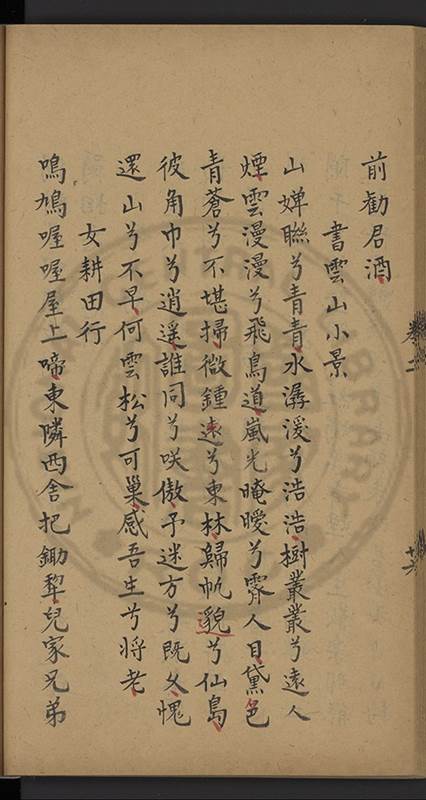 前勸君酒
書雲山小景
山嬋聯兮青青水潺湲兮浩浩樹叢叢兮遠人
煙雲漫漫兮飛鳥道嵐光晻曖兮霽人目黛色
青蒼兮不堪掃微鍾遠兮東林歸帆貌兮仙島
彼角巾兮逍遥誰同兮咲傲予迷方兮既久愧
還山兮不早何雲松兮可巢感吾生兮将老
女耕田行
鳴鳩喔喔屋上啼東隣西舍把鋤犂兒家兄弟
卷二